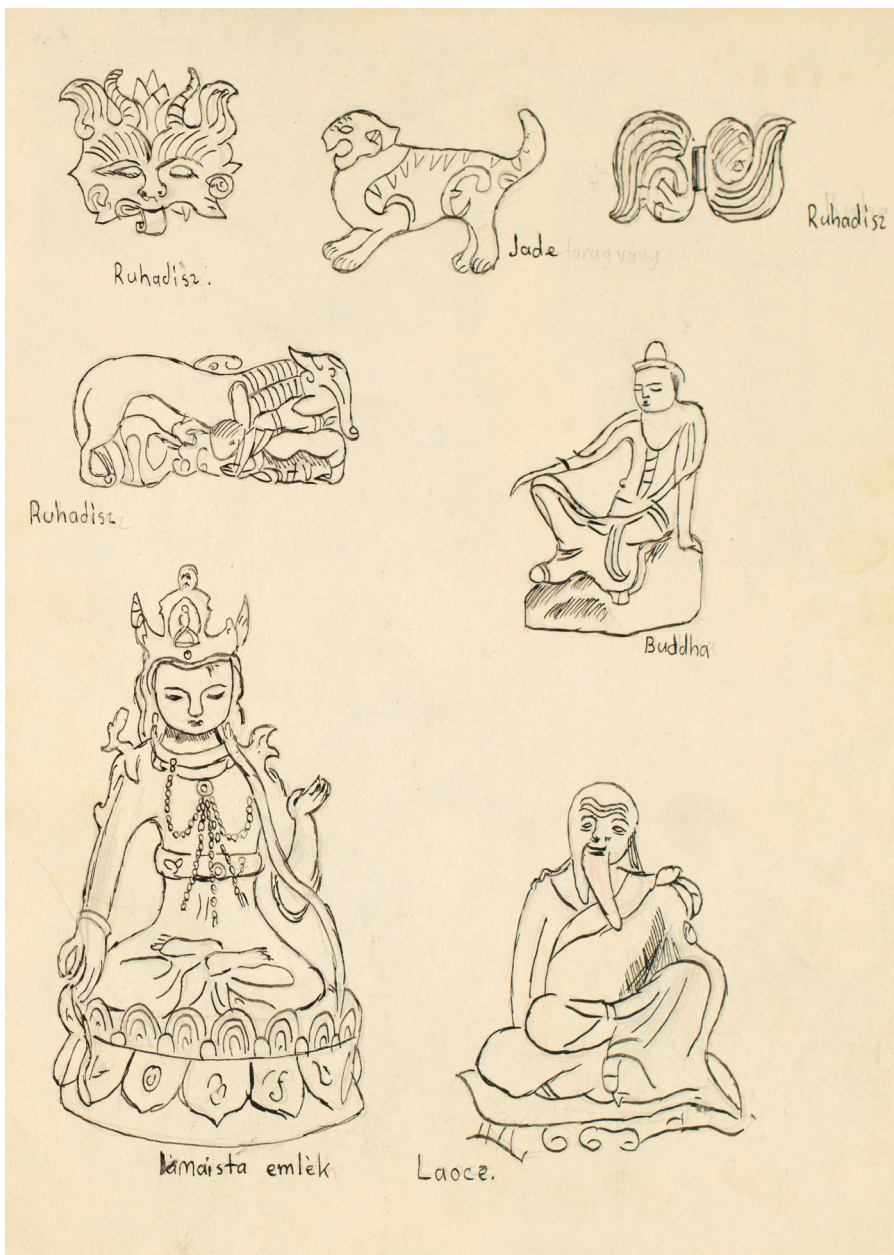 Ruhadisz.
Jade faragvány
Ruhadisz
Ruhadisz
Buddha
lámáista emlék
Laoce.